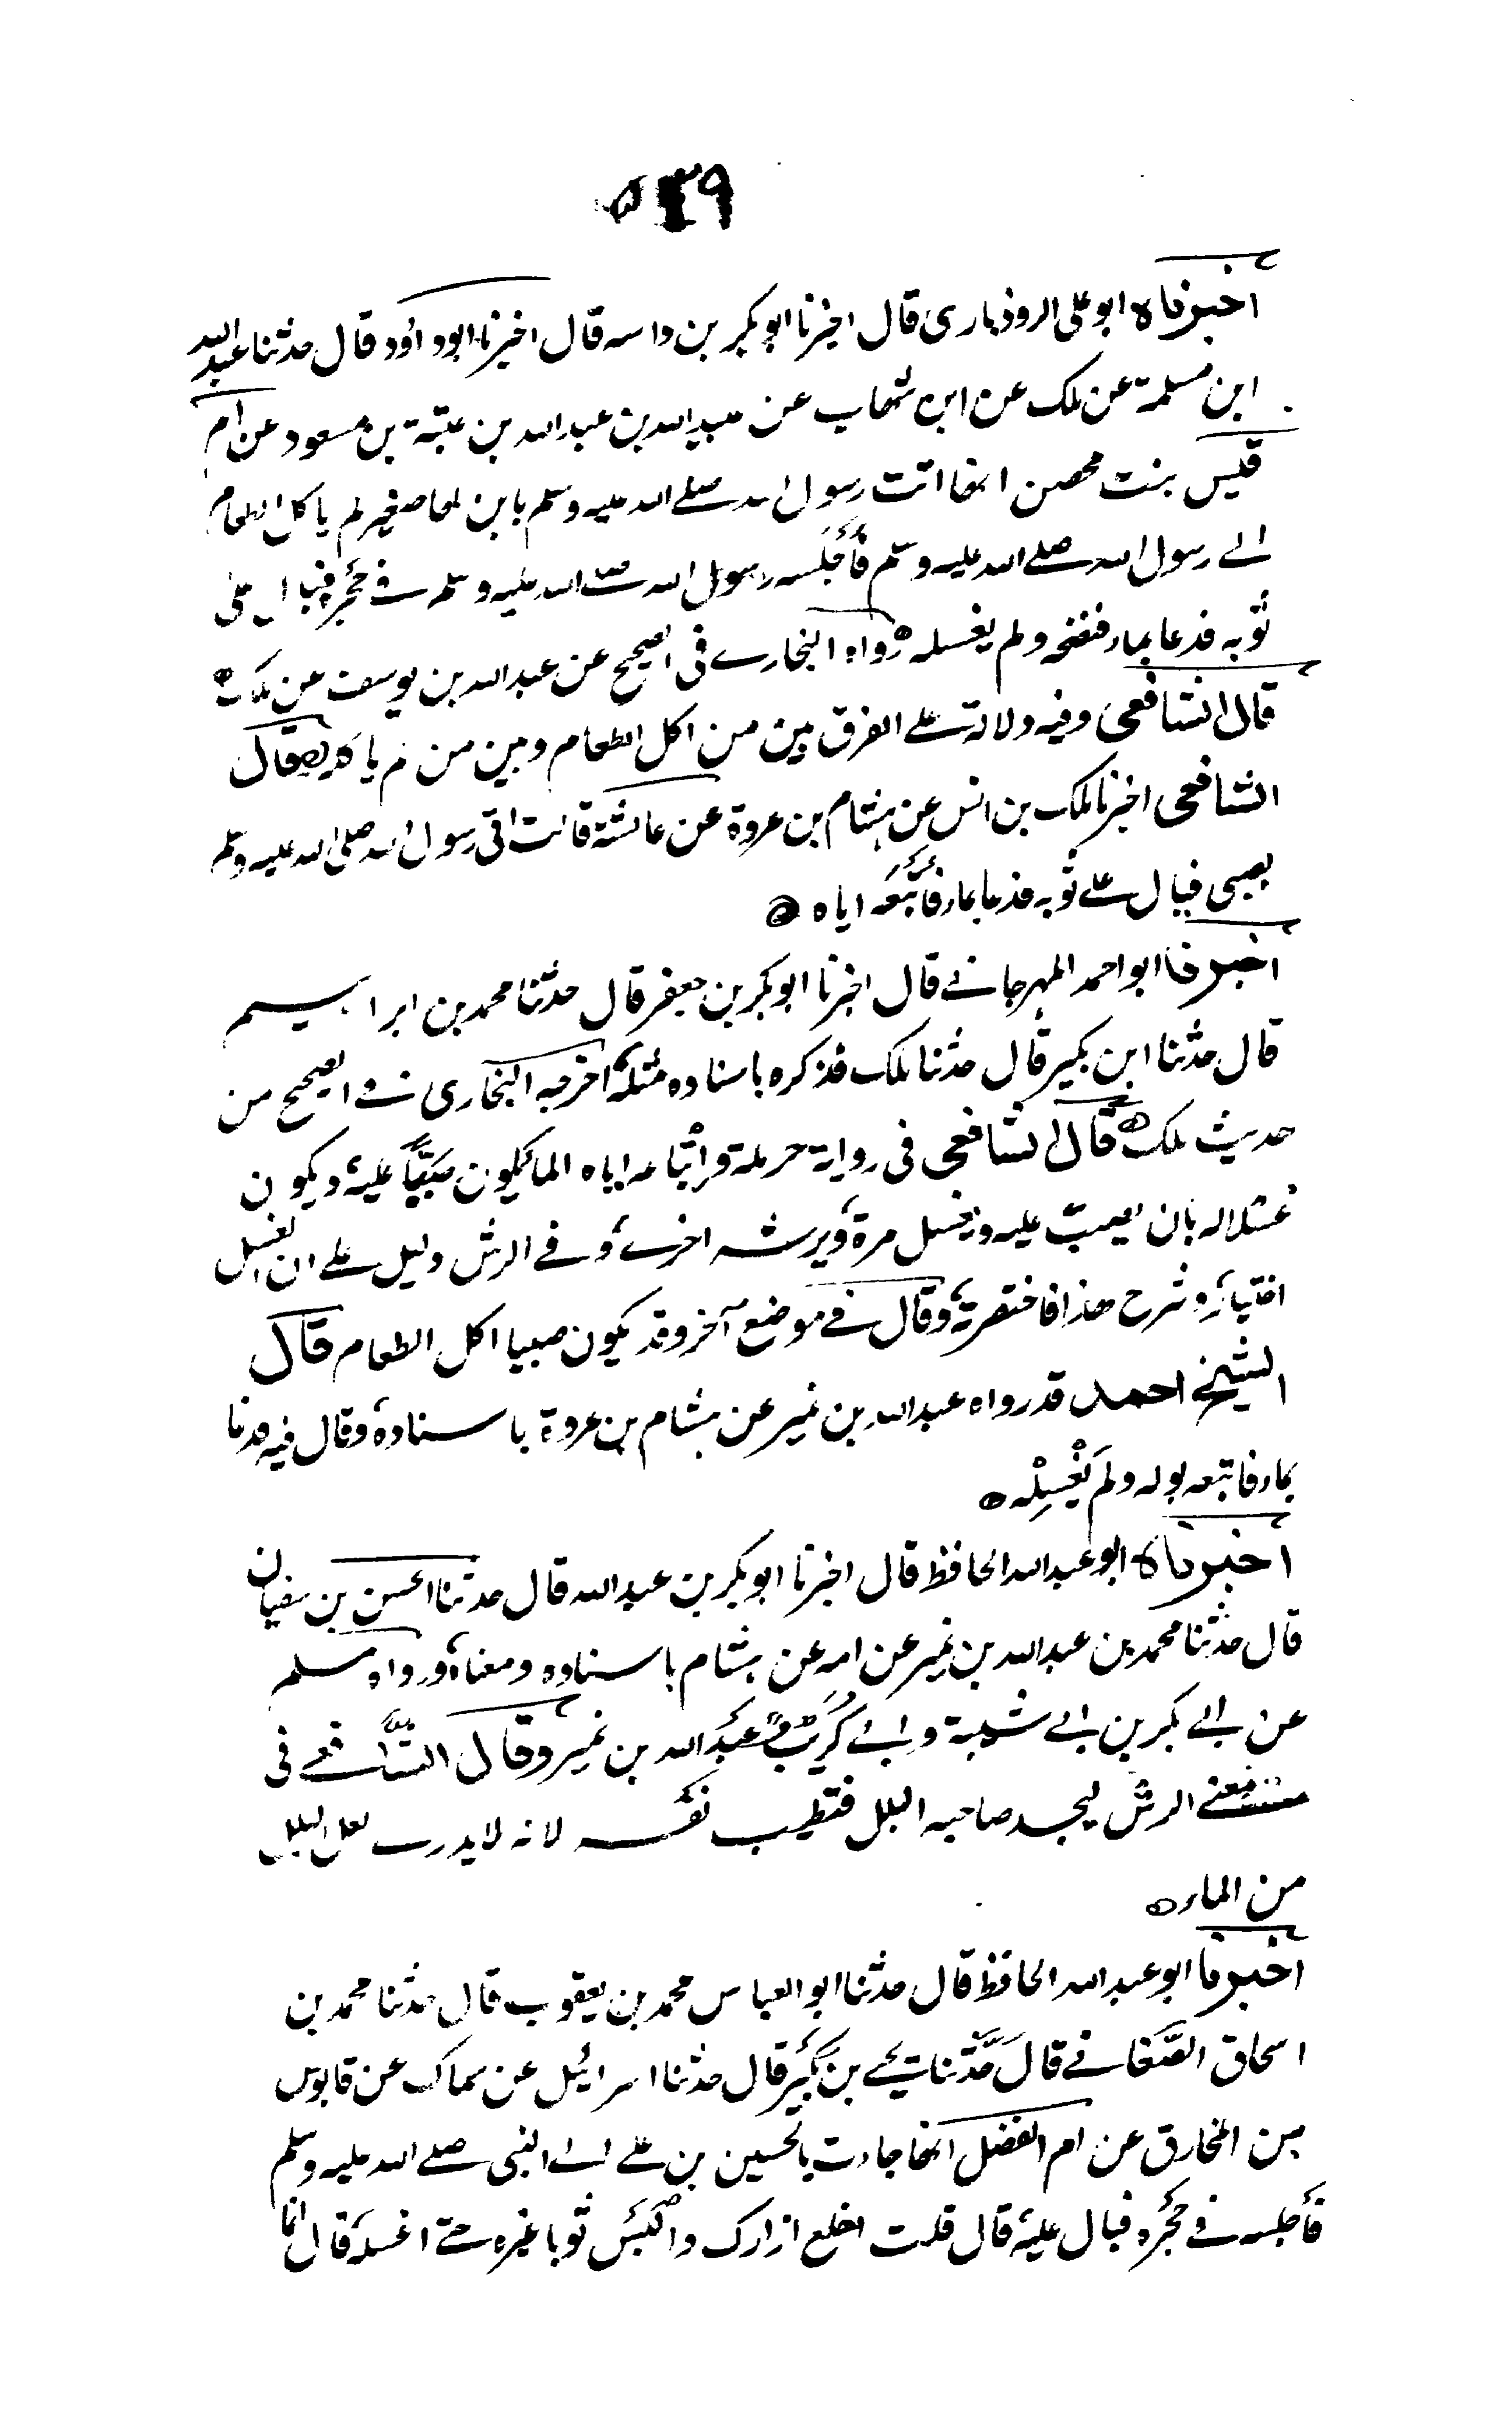 ٥٣٩
اخبرناه ابو على الروذبارى قال اخبرنا ابو بكر بن داسه قال اخبرنا ابوداؤد قال حدثنا عبد الله
ابن مسلمة عن ملك عن ابن شهاب عن عبيد الله بن عبد الله بن عتبة بن مسعود عن ام
قيس بنت محصن انها اتت رسول الله صلے الله عليه وسلم بابن لها صغير لم ياكل الطعام
الے رسول الله صلے الله عليه وسلم فأجلسه رسول الله صلے الله عليه وسلم فے حجره فبال على
ثوبه فدعا بماء فنضحه ولم يغسله رواه البخارے فى الصحيح عن عبد الله بن يوسف عن ملك
قال الشافعى وفيه دلالة علے الفرق بين من اكل الطعام وبين من لم ياكله قال
الشافعى اخبرنا ملك بن انس عن هشام بن عروة عن عائشة قالت اتى رسول الله صلى الله عليه وسلم
بصبى فبال علے ثوبه فدعا بماء فأتبعه اياه
اخبرنا ابو احمد المهرجانے قال اخبرنا ابو بكر بن جعفر قال حدثنا محمد بن ابراهيم
قال حدثنا ابن بكير قال حدثنا ملك فذكره باسناده مثله اخرجه البخارى فے الصحيح من
حديث ملك قال الشافعى فى رواية حرملة واتباعه اياه الما يكون صبًّا عليه ويكون
غسلا له بان يصبّ عليه ويغسل مرة ويرشه اخرے وفے الرش دليل علے ان الغسل
اختيار وشرح هذا فاختصرته وقال فے موضع آخر وقد يكون صبيا اكل الطعام قال
الشيخ احمد قد رواه عبد الله بن نمير عن هشام بن عروة باسناده وقال فيه فدعا
بماء فاتبعه بوله ولم يَغْسِلْه
اخبرناه ابو عبد الله الحافظ قال اخبرنا ابو بكر بن عبد الله قال حدثنا الحسن بن سفيان
قال حدثنا محمد بن عبد الله بن نمير عن ابيه عن هشام باسناده ومعناه ورواه مسلم
عن ابے بكر بن ابے شيبة وابے كُرَيْب عن عبد الله بن نمير وقال الشافعے فى
معنے الرش ليجد صاحبه البلل فتطيب نفسه لانه لا يدرے لعل البلل
من الماء
اخبرنا ابو عبد الله الحافظ قال حدثنا ابو العباس محمد بن يعقوب قال حدثنا محمد بن
اسحاق الصَّغانے قال حدَّثنا يحے بن بُكَير قال حدثنا اسرائيل عن سماك عن قابوس
بن المخارق عن ام الفضل انها جاءت بالحسين بن علے الے النبى صلے الله عليه وسلم
فأجلسه فے حجره فبال عليه قال قلت اخلع ازارك والبس ثوبا غيره حتے اغسله قال انما